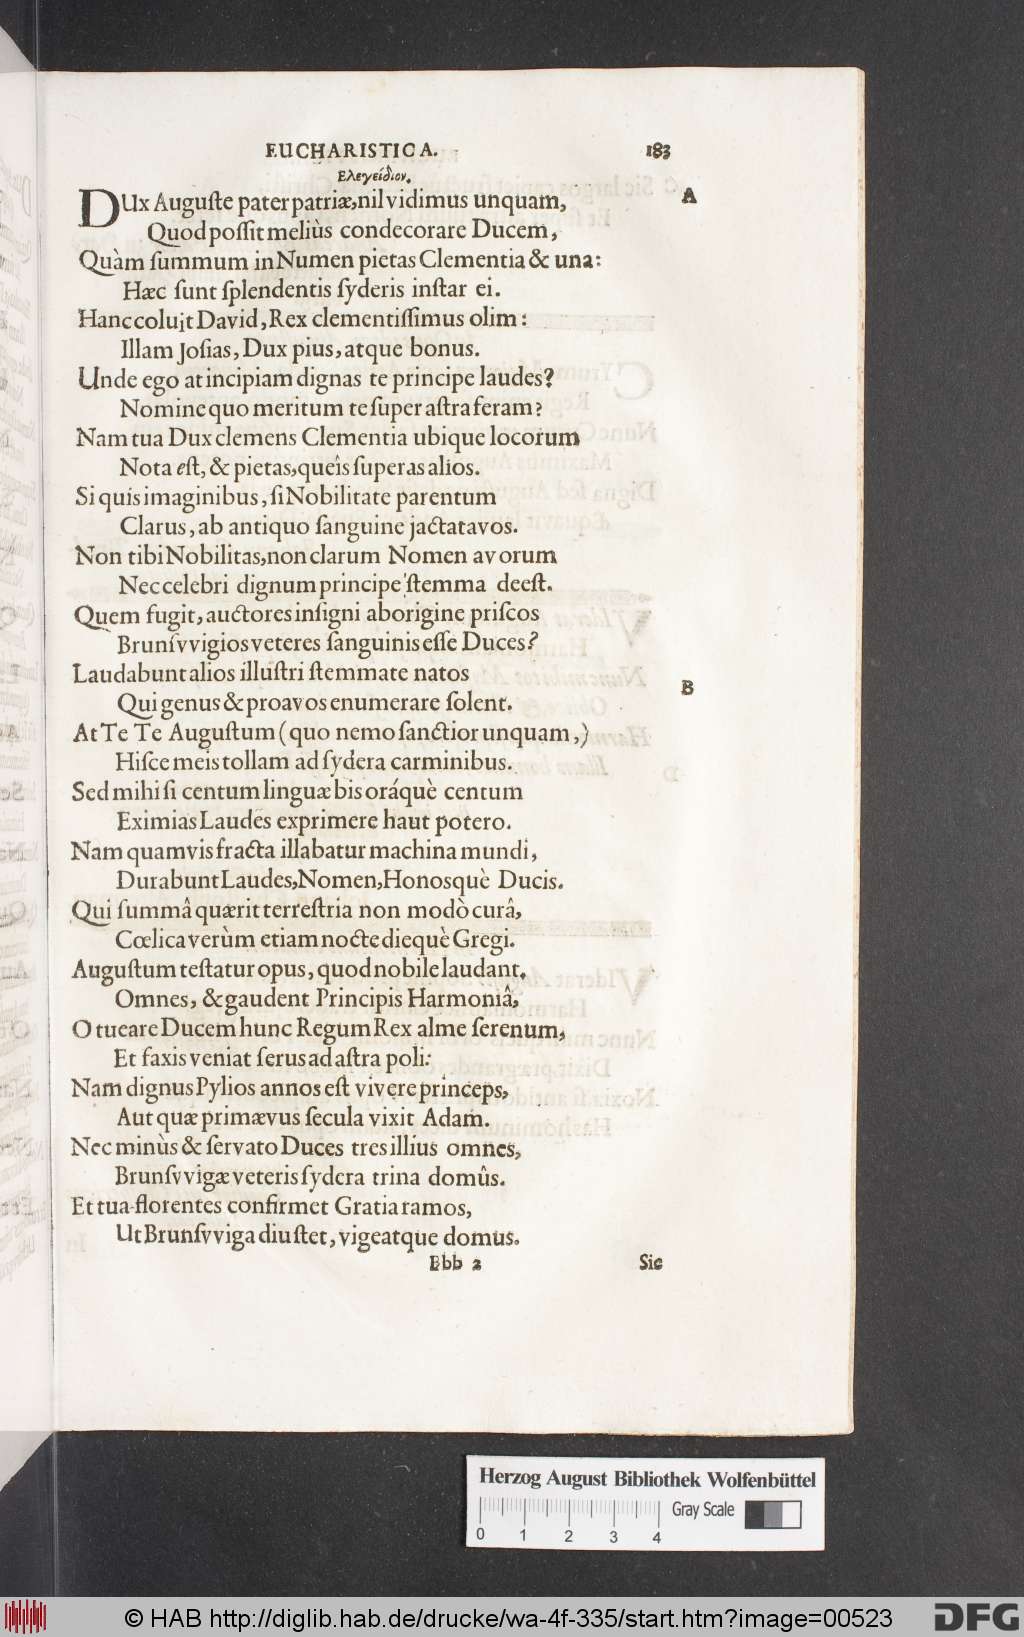 EUCHARISTICA. 183
Ελεγείδιον.
A
DUx Auguſte pater patriæ, nil vidimus unquam,
Quod poſſit meliùs condecorare Ducem,
Quàm ſummum in Numen pietas Clementia & una:
Hæc ſunt ſplendentis ſyderis inſtar ei.
Hanc coluit David, Rex clementiſſimus olim:
Illam Joſias, Dux pius, atque bonus.
Unde ego at incipiam dignas te principe laudes?
Nomine quo meritum te ſuper aſtra feram?
Nam tua Dux clemens Clementia ubique locorum
Nota eſt, & pietas, queîs ſuperas alios.
Si quis imaginibus, ſi Nobilitate parentum
Clarus, ab antiquo ſanguine jactat avos.
Non tibi Nobilitas, non clarum Nomen avorum
Nec celebri dignum principe ſtemma deeſt.
Quem fugit, auctores inſigni aborigine priſcos
Brunſvvigios veteres ſanguinis eſſe Duces?
Laudabunt alios illuſtri ſtemmate natos
B
Qui genus & proavos enumerare ſolent.
At Te Te Auguſtum (quo nemo ſanctior unquam,)
Hiſce meis tollam ad ſydera carminibus.
Sed mihi ſi centum linguæ bis oráquè centum
Eximias Laudes exprimere haut potero.
Nam quamvis fracta illabatur machina mundi,
Durabunt Laudes, Nomen, Honosquè Ducis.
Qui ſummâ quærit terreſtria non modò curâ,
Cœlica verùm etiam nocte diequè Gregi.
Auguſtum teſtatur opus, quod nobile laudant,
Omnes, & gaudent Principis Harmoniâ,
O tueare Ducem hunc Regum Rex alme ſerenum,
Et faxis veniat ſerus ad aſtra poli:
Nam dignus Pylios annos eſt vivere princeps,
Aut quæ primævus ſecula vixit Adam.
Nec minùs & ſervato Duces tres illius omnes,
Brunſvvigæ veteris ſydera trina domûs.
Et tua florentes confirmet Gratia ramos,
Ut Brunſvviga diu ſtet, vigeatque domus.
Bbb 2 Sic
Herzog August Bibliothek Wolfenbüttel
Gray Scale
0 1 2 3 4
© HAB http://diglib.hab.de/drucke/wa-4f-335/start.htm?image=00523
DFG